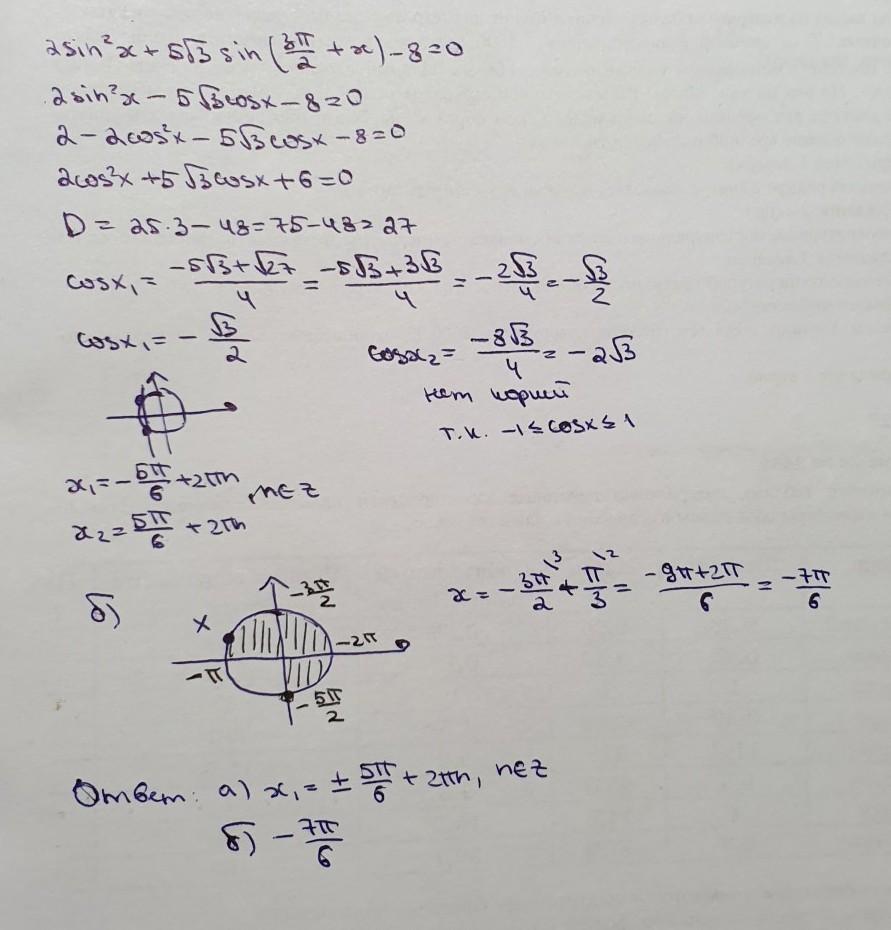 2sin²x + 5√3 sin (3π/2 + x) - 8 = 0
2sin²x - 5√3cosx - 8 = 0
2 - 2cos²x - 5√3cosx - 8 = 0
2cos²x + 5√3cosx + 6 = 0
D = 25·3 - 48 = 75 - 48 = 27
cosx₁ = (-5√3 + √27)/4 = (-5√3 + 3√3)/4 = -2√3/4 = -√3/2
cosx₁ = -√3/2
cosx₂ = -8√3/4 = -2√3
нет корней
т.к. -1 ≤ cosx ≤ 1
x₁ = -5π/6 + 2πn
, n∈Z
x₂ = 5π/6 + 2πn
б)
-3π/2
x
-2π
-π
-5π/2
x = -3π/2 \3 + π/3 \2 = (-9π + 2π)/6 = -7π/6
Ответ: а) x₁ = ± 5π/6 + 2πn, n∈Z
б) -7π/6